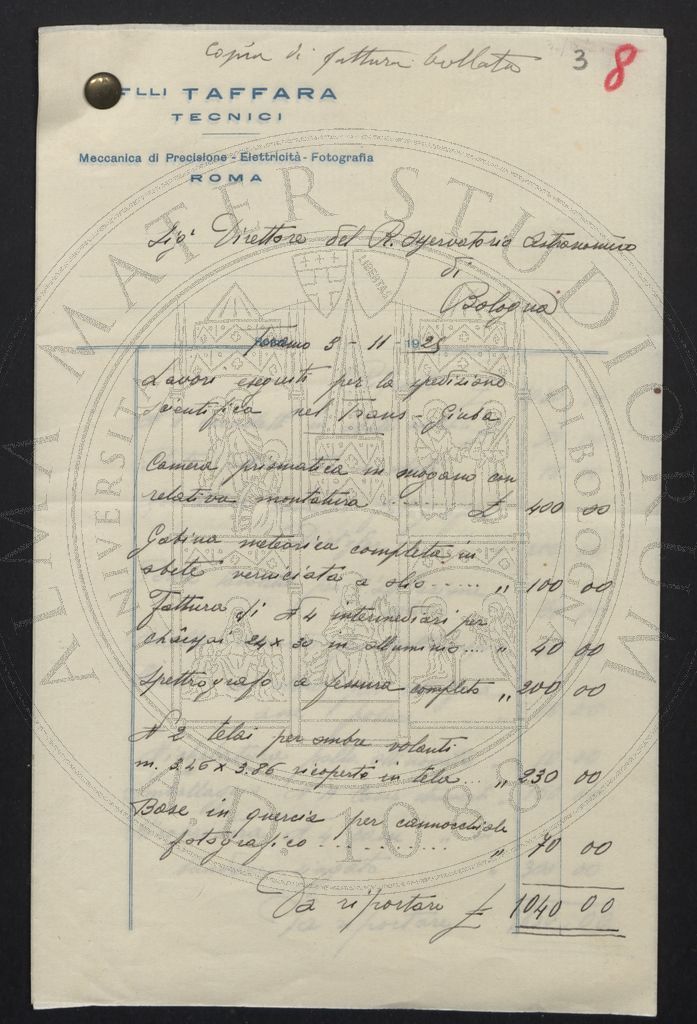 Copia di fattura bollata 3 8
F.LLI TAFFARA
TECNICI
Meccanica di Precisione - Elettricità - Fotografia
ROMA
Sigr Direttore del R. Osservatorio Astronomico
di
Bologna
3 - 11 1925
Lavori eseguiti per la spedizione
scientifica nel Trans-Giuba
Camera prismatica in mogano con
relativa montatura ..... £ 400 00
Gabina meteorica completa in
abete verniciata a olio ..... „ 100 00
Fattura di N 4 intermediari per
chassai 24 x 30 in alluminio ... „ 40 00
Spettrografo a fessura completo „ 200 00
N 2 telai per ombre volanti
m. 3.46 x 3.86 ricoperto in tela ... „ 230 00
Base in quercia per cannocchiale
fotografico ........... „ 70 00
Da riportare £ 1040 00
ALMA MATER STUDIORUM
UNIVERSITÀ DI BOLOGNA
LIBERTAS
A.D. 1088